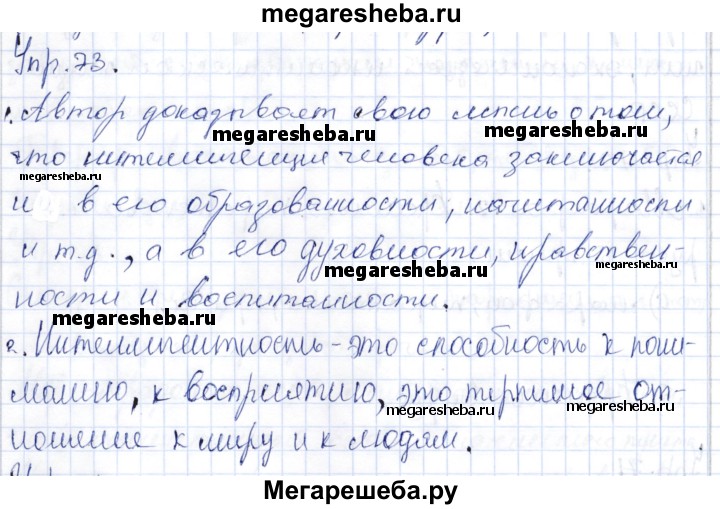 megaresheba.ru
Упр. 73.
1. Автор доказывает свою мысль о том,
megaresheba.ru
megaresheba.ru
что интеллигенция человека заключается
megaresheba.ru
и в его образованности, начитанности
и т.д., а в его духовности, нравствен-
megaresheba.ru
megaresheba.ru
ности и воспитанности.
megaresheba.ru
2. Интеллигентность - это способность к пони-
манию, к восприятию, это терпимое от-
megaresheba.ru
megaresheba.ru
ношение к миру и к людям.
Мегарешеба.ру